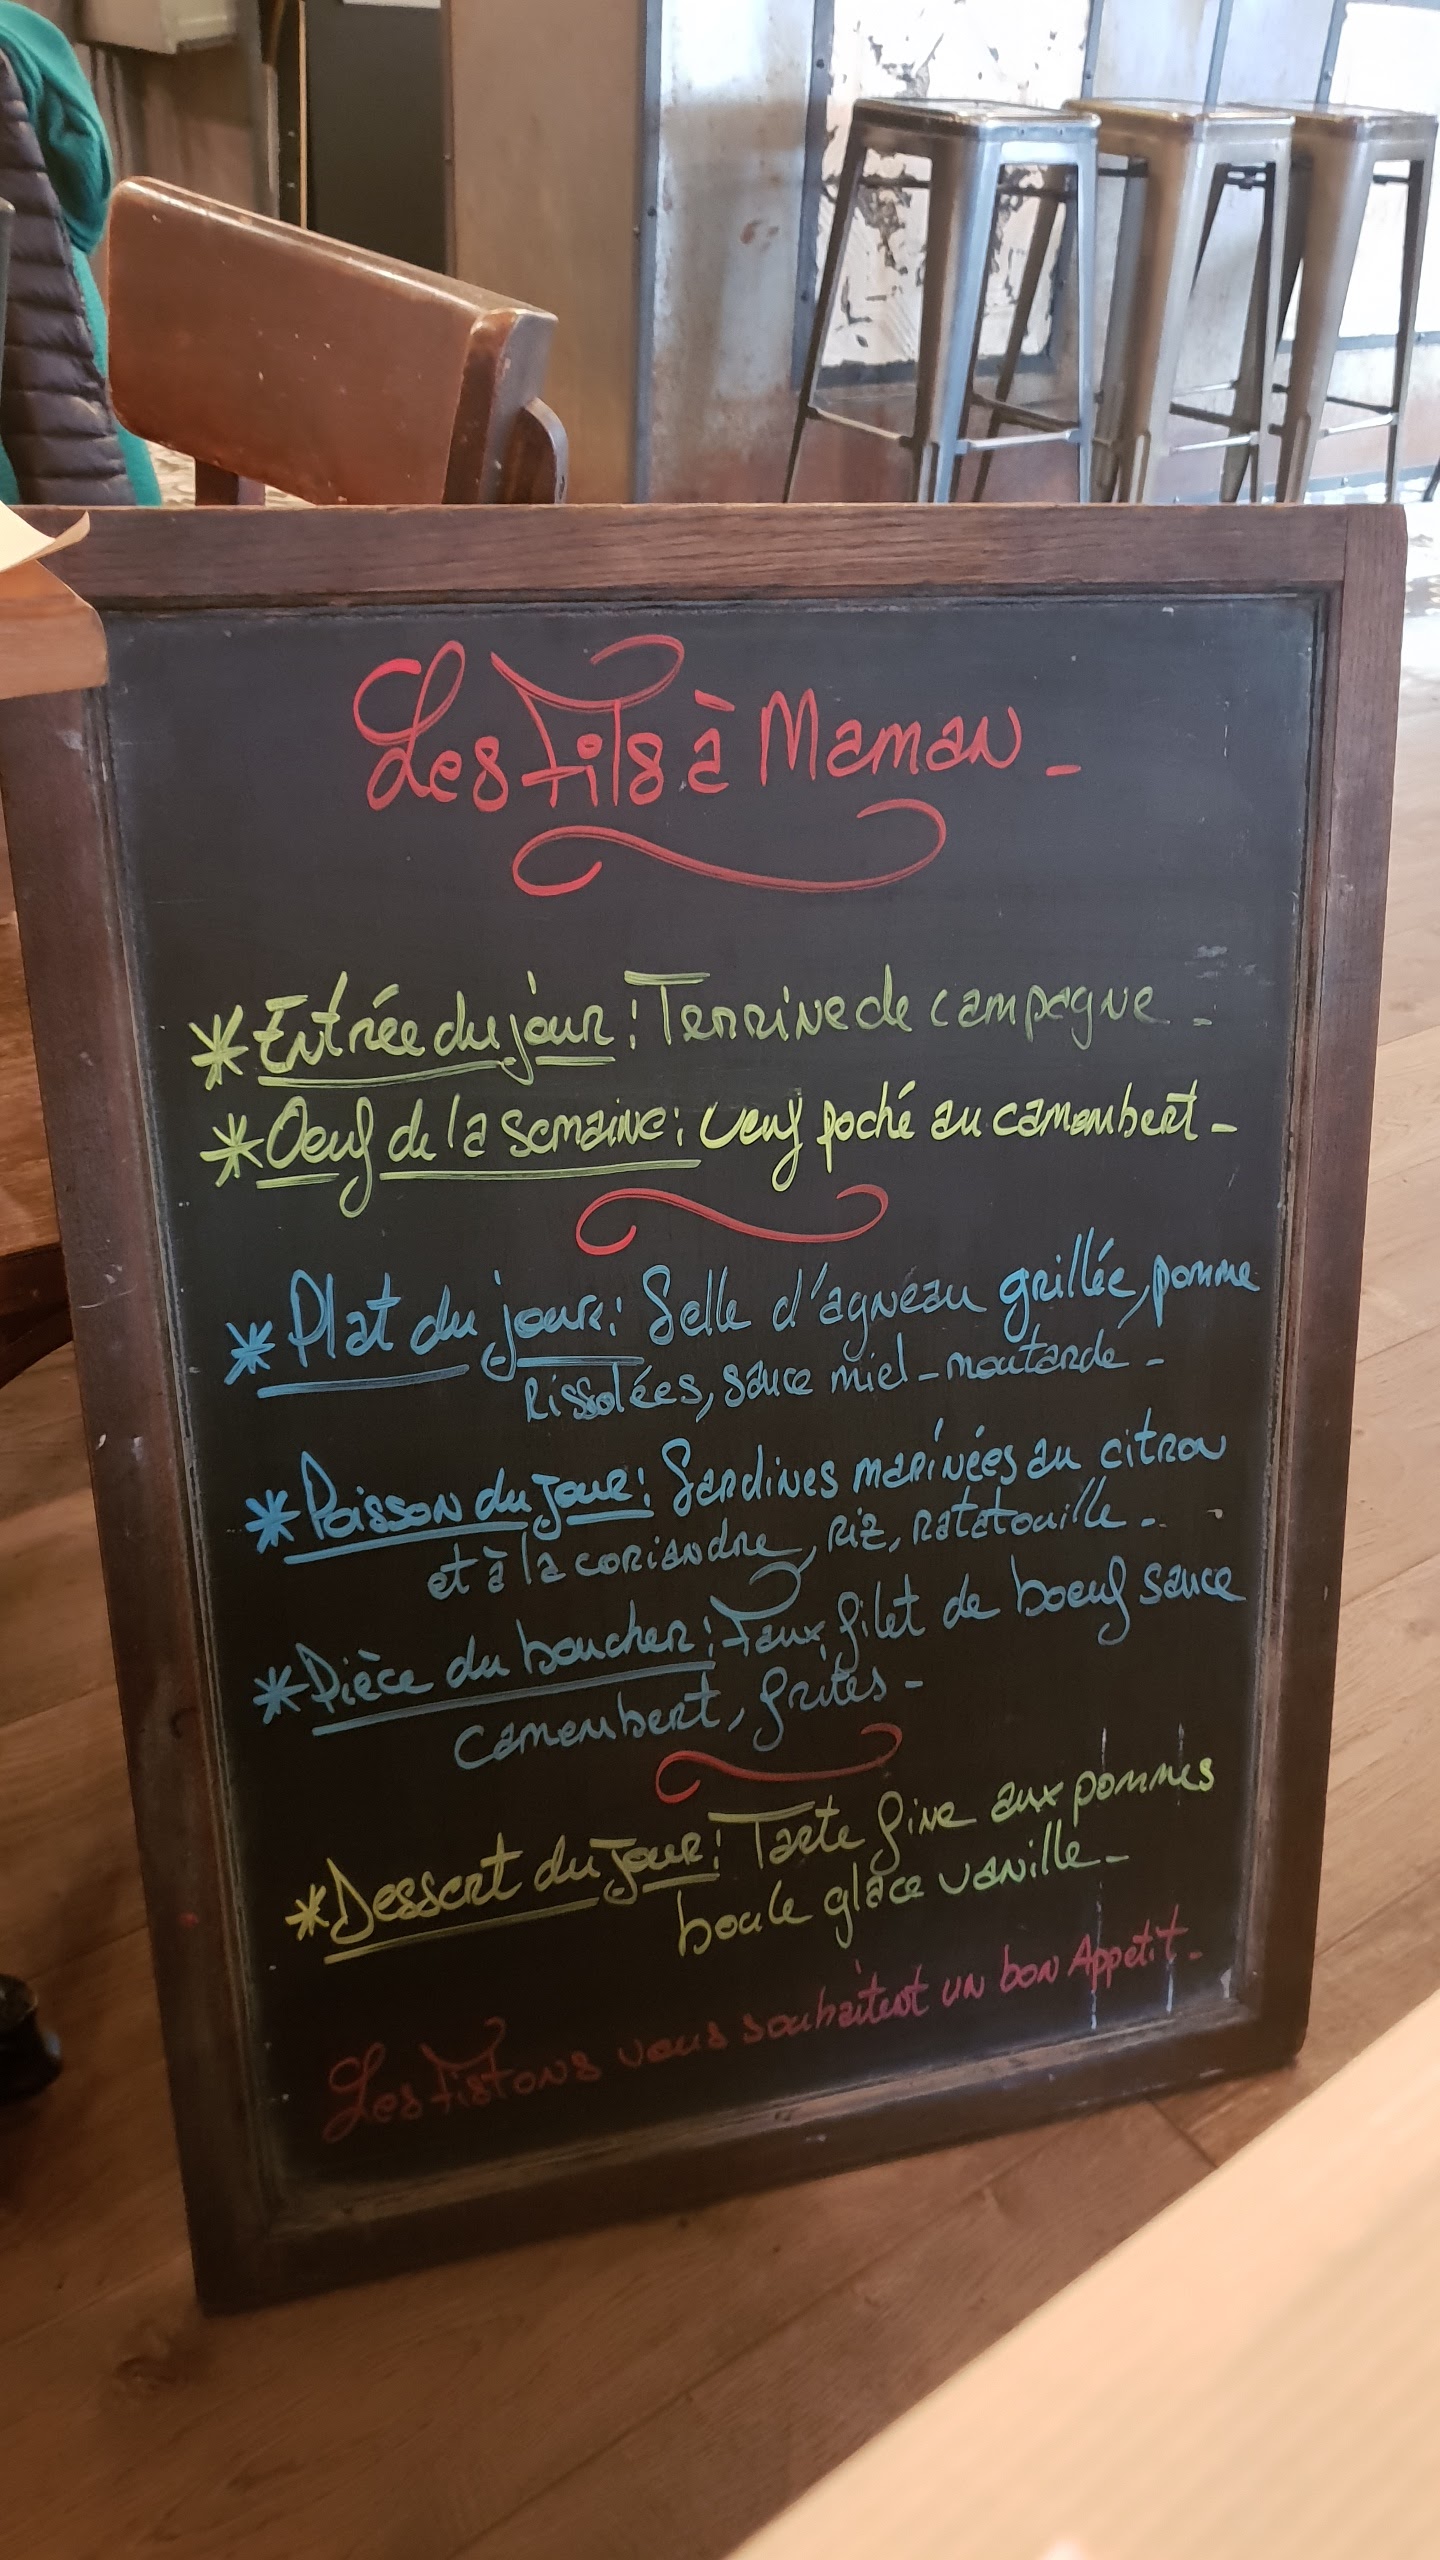 Les Fils à Maman -
* Entrée du jour : Terrine de campagne -
* Oeuf de la semaine : Oeuf poché au camembert -
* Plat du jour : Selle d'agneau grillée, pomme
Rissolées, sauce miel - moutarde -
* Poisson du jour : Sardines marinées au citron
et à la coriandre, riz, ratatouille -
* Pièce du boucher : Faux filet de boeuf sauce
camembert, frites -
* Dessert du jour : Tarte fine aux pommes
boule glace vanille -
Les Fistons vous souhaitent un bon Appetit -